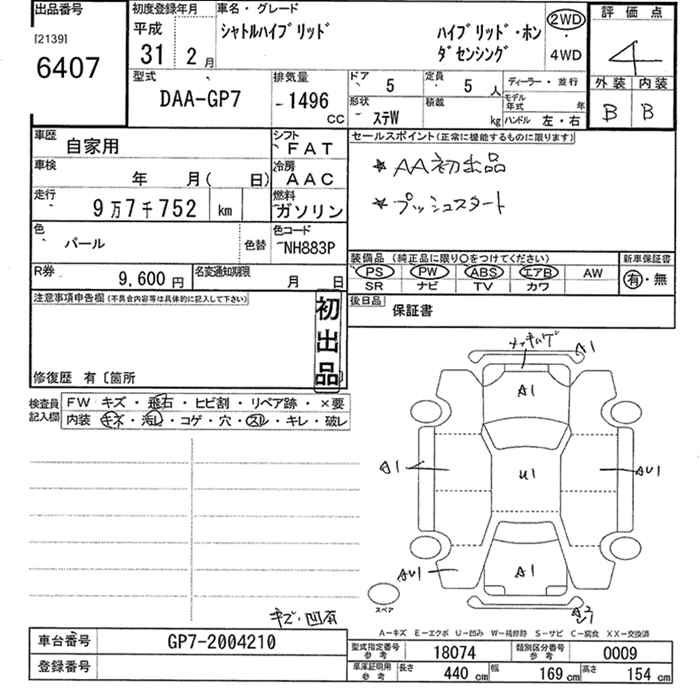 出品番号
[2139]
6407
初度登録年月
平成
31 2月
車名・グレード
シャトルハイブリッド ハイブリッド・ホン
ダセンシング
2WD
4WD
評価点
4
外装 内装
B B
型式
DAA-GP7
排気量
1496
CC
ドア
5
定員
5人
ディーラー・並行
形状
ステW
積載
kg
モデル
年式
年
ハンドル 左・右
車歴
自家用
シフト
FAT
車検
年 月( 日)
冷房
AAC
走行
9万7千752 km
燃料
ガソリン
色
パール
色替
色コード
NH883P
R券
9,600円
名変通知期限
月 日
セールスポイント(正常に機能するものに限ります)
★AA初出品
★プッシュスタート
装備品(純正品に限り〇をつけてください)
PS PW ABS エアB AW
SR ナビ TV カワ
新車保証書
有・無
後日品
保証書
注意事項申告欄(不具合内容等は具体的に記入して下さい)
初出品
修復歴 有〔箇所 〕
検査員
記入欄
FW キズ・飛石・ヒビ割・リペア跡・×要
内装 キズ・汚レ・コゲ・穴・スレ・キレ・破レ
A1
A1
A1
U1
AU1
AU1
A1
スペア
キズ・凹有
A−キズ E−エクボ U−凹み W−補修跡 S−サビ C−腐食 XX−交換済
車台番号
GP7-2004210
登録番号
型式指定番号
参考
18074
類別区分番号
参考
0009
車庫証明用
参考
長さ
440 cm
幅
169 cm
高さ
154 cm